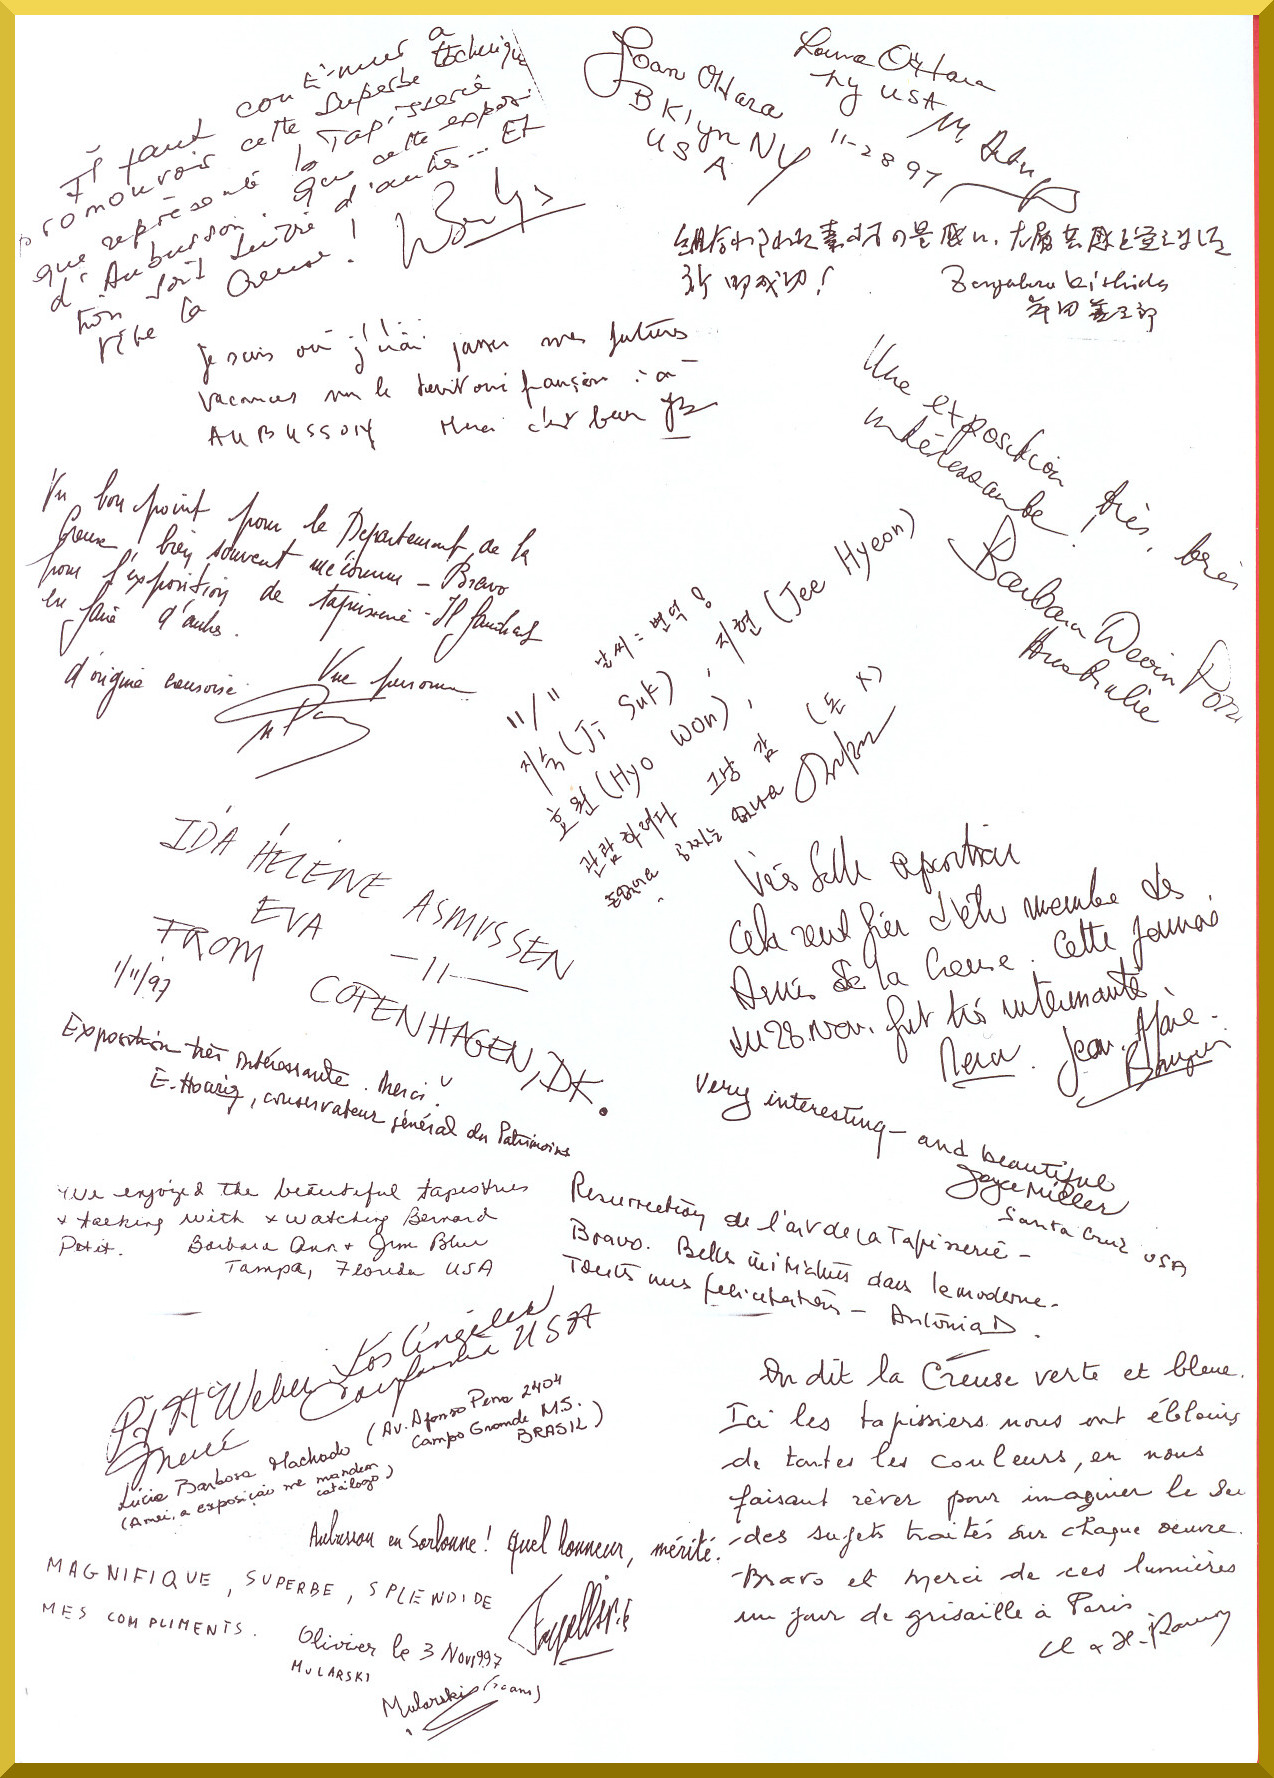 Il faut continuer à
promouvoir cette superbe technique
que représente la Tapisserie
d'Aubusson. Que cette exposi-
tion soit suivie d'autres... Et
Vive la Creuse!
Joan O'Hara
BKlyn NY
USA
Lorna O'Hara
NY USA
11-28 97
岸田善三郎
Je sais où j'irai passer mes futures
vacances sur le territoire français : à
AUBUSSON Merci c'est beau
Une exposition très, très
intéressante!
Barbara
Australie
Un bon point pour le Département de la
Creuse, bien souvent méconnu - Bravo
pour l'exposition de tapisserie - Il faudrait
en faire d'autres.
Une personne
d'origine creusoise.
11/11 날씨=변덕!
지숙(Ji Suk), 지현(Jee Hyeon)
효원(Hyo Won),
관람하러다 그냥 감 (돈 X)
IDA HÉLÈNE ASMUSSEN
EVA —11—
FROM COPENHAGEN, DK.
1/11/97
Très belle exposition
Cela rend fier d'être membre des
Amis de la Creuse. Cette journée
du 28 Nov. fut très intéressante.
Merci. Jean-Marie
Exposition très intéressante. Merci!
E. Houriez, conservateur général du Patrimoine
Very interesting - and beautiful
Joyce Miller
Santa Cruz USA
We enjoyed the beautiful tapestries
+ talking with + watching Bernard
Petit. Barbara Ann + Jim Blue
Tampa, Florida USA
Resurrection de l'art de la Tapisserie -
Bravo. Belles initiatives dans le moderne -
Toutes mes felicitations - Antonia D.
Weber Los Angeles
California USA
Merci
Lúcia Barbosa Machado (Av. Afonso Pena 2404
Campo Grande M.S.
BRASIL)
(Amei, a exposição me mandem
catálogo)
On dit la Creuse verte et bleue.
Ici les tapissiers nous ont éblouis
de toutes les couleurs, en nous
faisant rêver pour imaginer le
des sujets traités sur chaque oeuvre.
Bravo et merci de ces lumières
un jour de grisaille à Paris
Aubusson en Sorbonne! Quel honneur, mérité.
MAGNIFIQUE, SUPERBE, SPLENDIDE
MES COMPLIMENTS.
Olivier le 3 Nov 1997
MULARSKI
Mularski